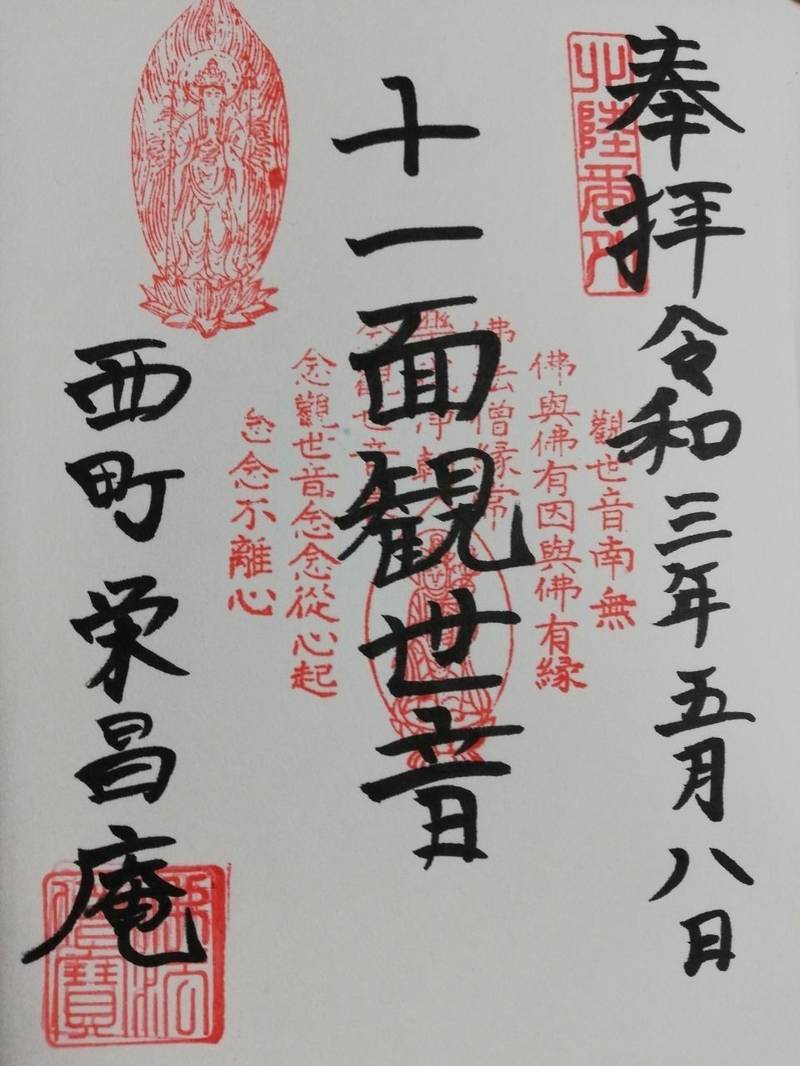 奉拝 令和三年五月八日
北陸番外
十一面観世音
觀世音南無
佛與佛有因與佛有緣
佛法僧緣常
念觀世音
念觀世音念念從心起
念念不離心
西町 栄昌庵
佛法僧寶